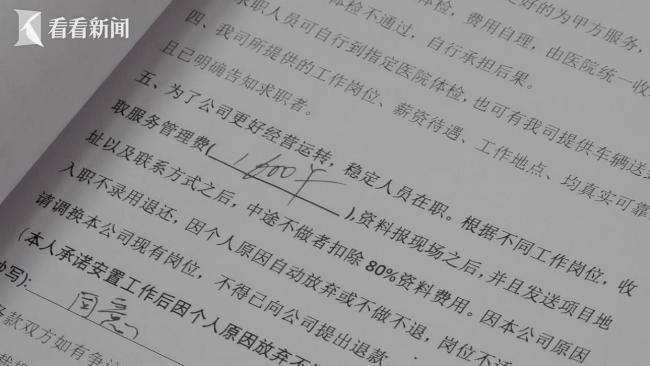 看看新闻
好的为甲方服务,
求职人员可自行到指定医院体检,费用自理,由医院统一收
体检不通过,自行承担后果。
四、我司所提供的工作岗位、薪资待遇、工作地点、均真实可靠
且已明确告知求职者。
也可有我司提供车辆送
五、为了公司更好经营运转,稳定人员在职。根据不同工作岗位,收
取服务管理费( 1600 ),资料报现场之后,并且发送项目地
址以及联系方式之后,中途不做者扣除80%资料费用。因本公司原因
入职不录用退还,因个人原因自动放弃或不做不退,岗位不
请调换本公司现有岗位,不得已向公司提出退款。
(本人承诺安置工作后因个人原因放弃不
写):
条款双方如有争议